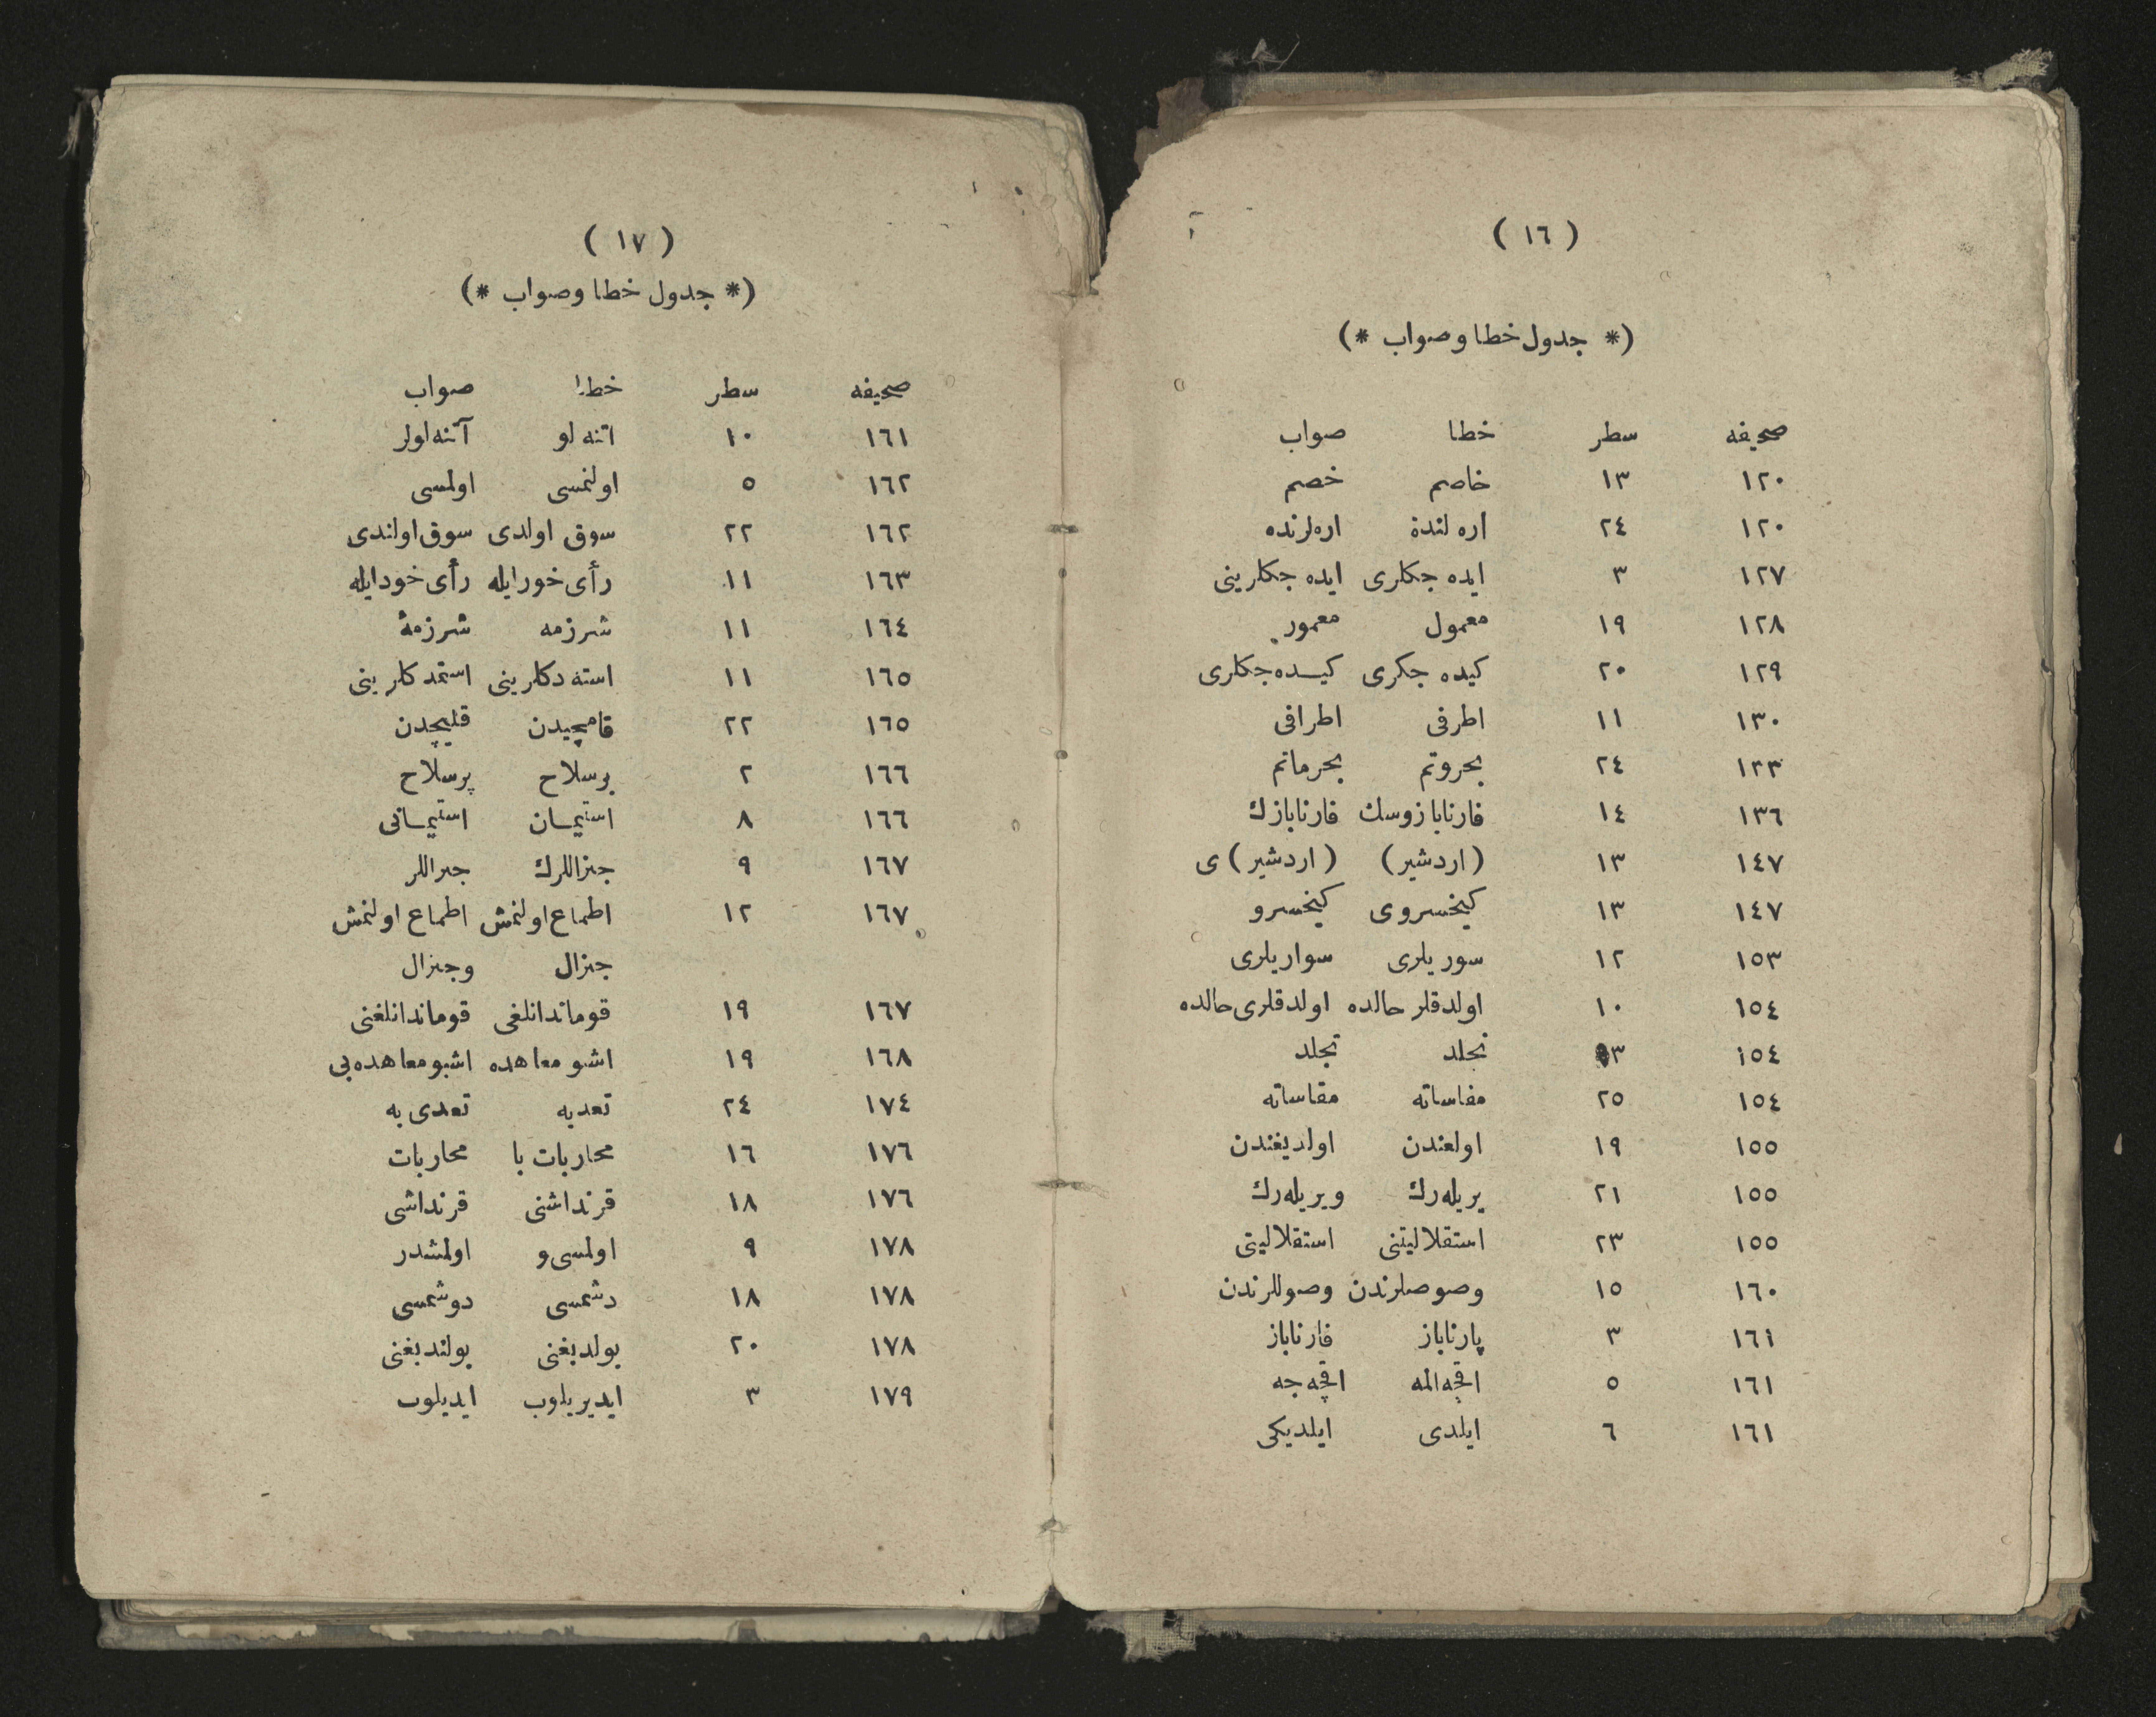 ( ١٦ )
(* جدول خطا وصواب *)
صحیفه سطر خطا صواب
١٢٠ ١٣ خاصم خصم
١٢٠ ٢٤ اره لندة اره‌لرنده
١٢٧ ٣ ایده جکلری ایده جکلرینی
١٢٨ ١٩ معمول معمور
١٢٩ ٢٠ كیده جكری كیـده‌جكلری
١٣٠ ١١ اطرفی اطرافی
١٣٣ ٢٤ بحروتم بحرماتم
١٣٦ ١٤ فارنابازوسك فارنابازك
١٤٧ ١٣ (اردشیر) (اردشیر) ی
١٤٧ ١٣ كیخسروی كیخسرو
١٥٣ ١٢ سوریلری سواریلری
١٥٤ ١٠ اولدقلر حالده اولدقلری حالده
١٥٤ ٣ نجلد تجلد
١٥٤ ٢٥ مفاساته مقاساته
١٥٥ ١٩ اولعندن اولدیغندن
١٥٥ ٢١ یریله‌رك ویریله‌رك
١٥٥ ٢٣ استقلالیتنی استقلالیتی
١٦٠ ١٥ وصوصلرندن وصوللرندن
١٦١ ٣ پارناباز فارناباز
١٦١ ٥ اقچه‌المه اقچه‌جه
١٦١ ٦ ایلدی ایلدیكی
( ١٧ )
(* جدول خطا وصواب *)
صحیفه سطر خطا صواب
١٦١ ١٠ اتنه لو آتنه‌لولر
١٦٢ ٥ اولنمسی اولمسی
١٦٢ ٢٢ سوق اولدی سوق اولندی
١٦٣ ١١ رأی خورایله رأی خودایله
١٦٤ ١١ شرزمه شرزمۀ
١٦٥ ١١ استه دكلرینی استمدكلرینی
١٦٥ ٢٢ قامچیدن قلیچدن
١٦٦ ٢ برسلاح پرسلاح
١٦٦ ٨ استیمـان استیمـانی
١٦٧ ٩ جنراللرك جنراللر
١٦٧ ١٢ اطماع اولنمش اطماع اولنمش
جنرال وجنرال
١٦٧ ١٩ قوماندانلغی قوماندانلغنی
١٦٨ ١٩ اشبو معاهده اشبو معاهده‌یی
١٧٤ ٢٤ تعدیه تعدی‌یه
١٧٦ ١٦ محاربات یا محاربات
١٧٦ ١٨ قرنداشنی قرنداشی
١٧٨ ٩ اولمسی و اولمشدر
١٧٨ ١٨ دشمسی دوشمسی
١٧٨ ٢٠ بولدیغنی بولندیغنی
١٧٩ ٣ ایدیریلوب ایدیلوب